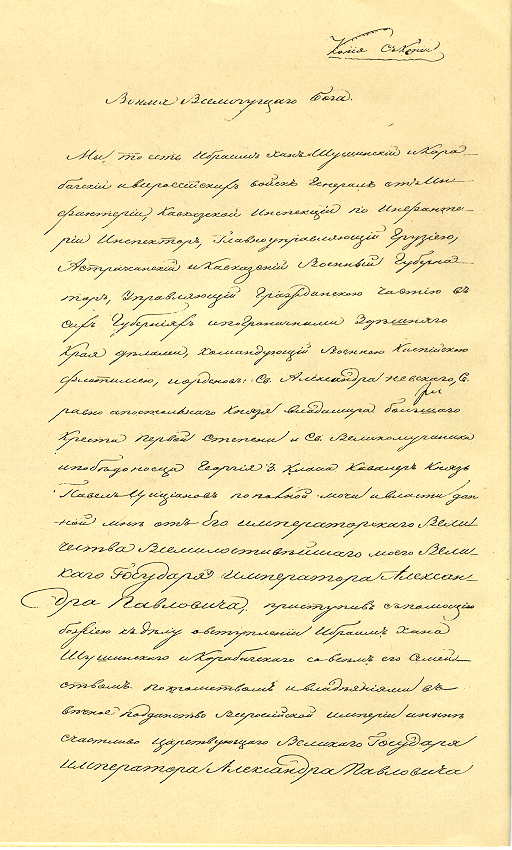 Копія съ Копіи
Во имя Всемогущаго Бога.
Мы, то есть Ибраимъ ханъ Шушинскій и Кора-
багскій и всероссійскихъ войскъ Генералъ отъ Ин-
фантеріи, Кавказской Инспекціи по Инфанте-
ріи Инспекторъ, Главноуправляющій Грузіею,
Астраханскій и Кавказскій Военный Губерна-
торъ, Управляющій Гражданскою частію въ
сихъ Губерніяхъ и пограничными Здѣшняго
Края дѣлами, командующій Военною Каспійскою
флотиліею, и орденовъ: Св. Александра невскаго, Св.
равно апостольнаго Князя Владимира большаго
Креста первой степени и Св. Великомученика
и побѣдоносца Георгія 3. класа Кавалеръ Князь
Павелъ Циціановъ по полной мочи и власти дан-
ной мнѣ отъ Его императорскаго Вели-
чества Всемилостивѣйшаго моего Вели-
каго Государя Императора Алексан-
дра Павловича, приступивъ съ помощію
божіею къ дѣлу о вступленіи Ибраимъ Хана
Шушинскаго и Корабагскаго со всемъ его Семей-
ствомъ потомствомъ и владѣніями въ
вѣчное подданство Всеросійской имперіи и нынѣ
счастливо царствующаго Великаго Государя
Императора Александра Павловича